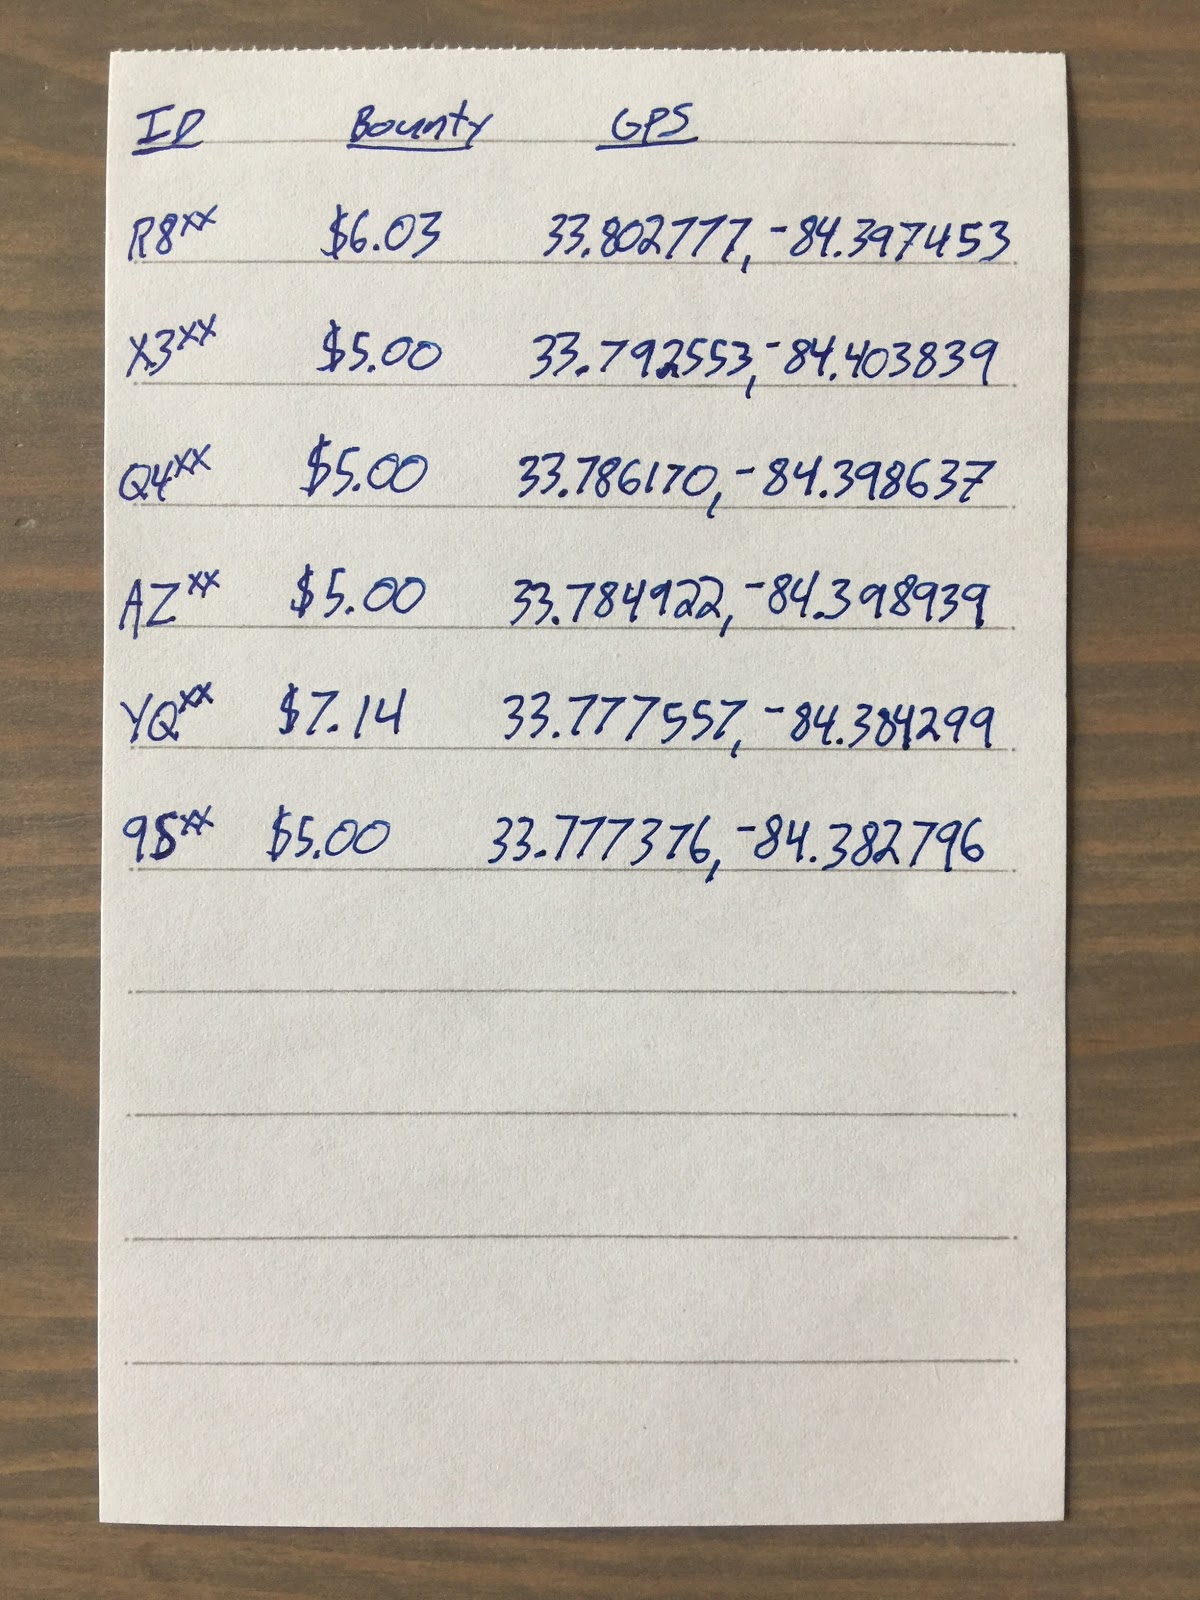 ID Bounty GPS
R8xx $6.03 33.802777, -84.397453
X3xx $5.00 33.792553, -84.403839
Q4xx $5.00 33.786170, -84.398637
AZxx $5.00 33.784922, -84.398939
YQxx $7.14 33.777557, -84.384299
9Sxx $5.00 33.777376, -84.382796